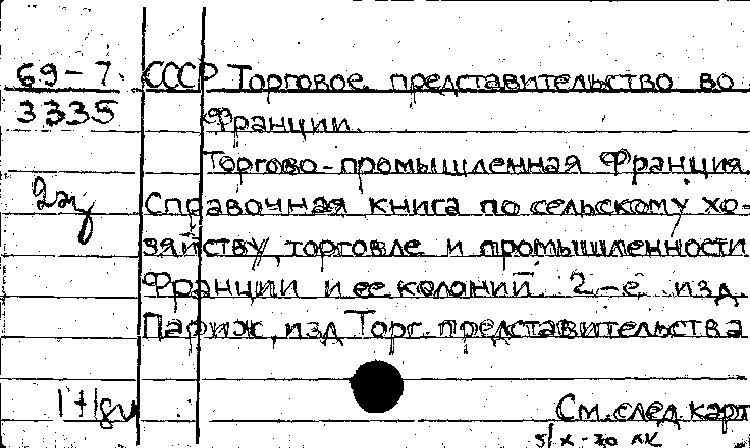 69-7 СССР Торговое представительство во
3335 Франции.
Торгово-промышленная Франция.
2 Справочная книга по сельскому хо-
зяйству, торговле и промышленности
Франции и ее колоний. 2-е изд.
Париж, изд Торг. представительства
См. след карт